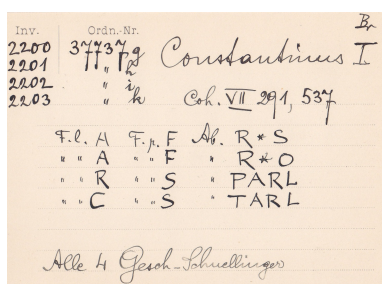 Br
Inv. Ordn.-Nr.
2200 37737 g Constantinus I
2201 " h
2202 " i
2203 " k Coh. VII 291, 537
F. l. A F. r. F Ab. R*S
" " A " " F " R*O
" " R " " S " PARL
" " C " " S " TARL
Alle 4 Gesch-Schuellinger